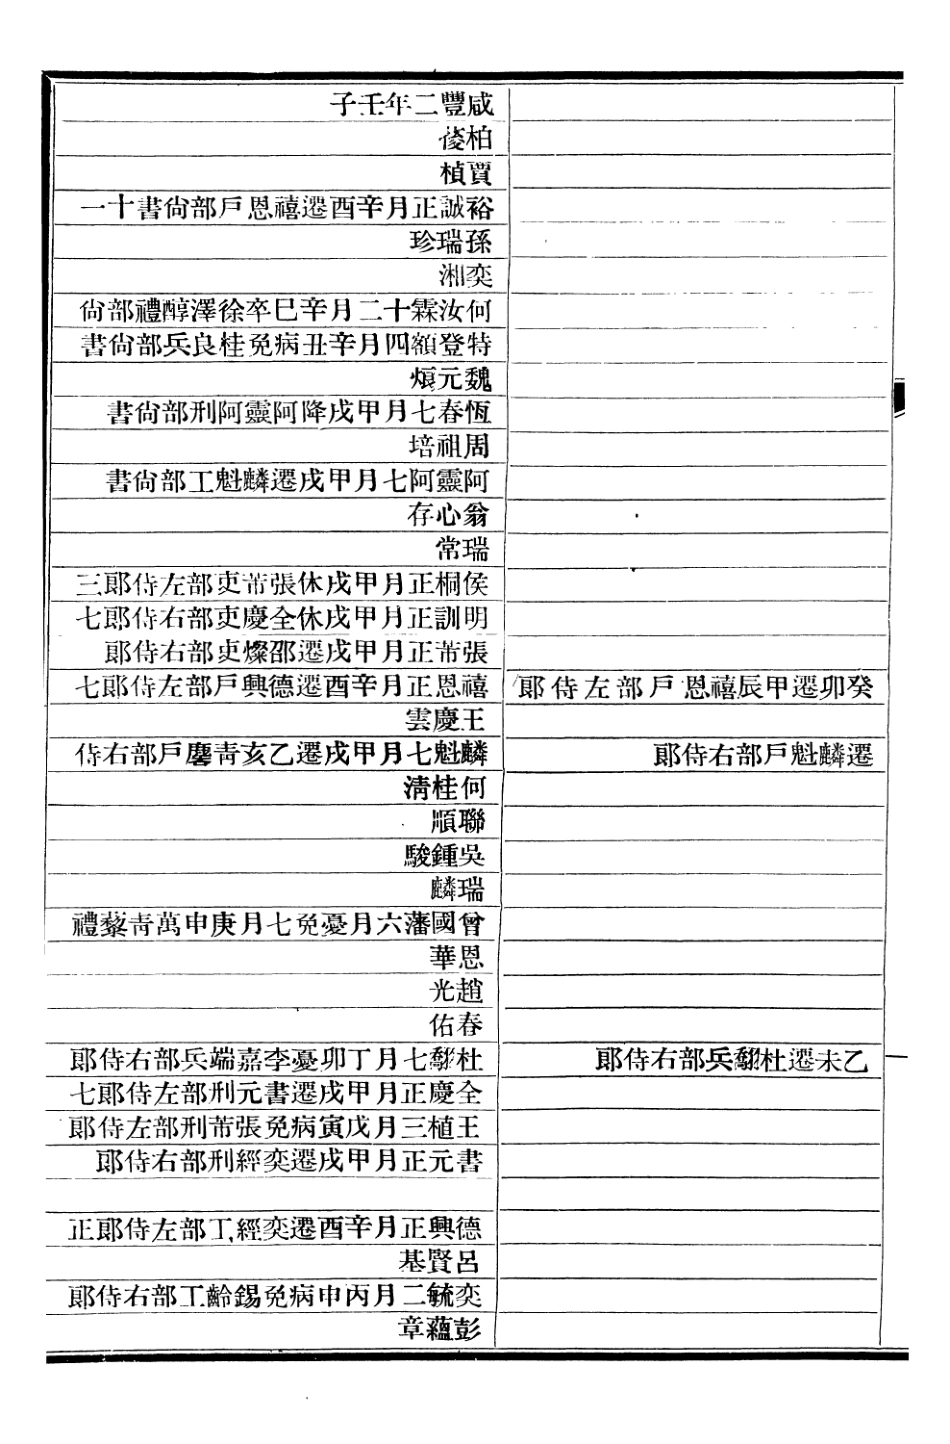 癸卯遷甲辰禧恩戶部左侍郞
遷麟魁戶部右侍郞
乙未遷杜翮兵部右侍郞
咸豐二年壬子
柏葰
賈楨
裕誠正月辛酉遷禧恩戶部尙書十一
孫瑞珍
奕湘
何汝霖十二月辛巳卒徐澤醇禮部尙
特登額四月辛丑病免桂良兵部尙書
魏元烺
恆春七月甲戌降阿靈阿刑部尙書
周祖培
阿靈阿七月甲戌遷麟魁工部尙書
翁心存
瑞常
侯桐正月甲戌休張芾吏部左侍郞三
明訓正月甲戌休全慶吏部右侍郞七
張芾正月甲戌遷邵燦吏部右侍郞
禧恩正月辛酉遷德興戶部左侍郞七
王慶雲
麟魁七月甲戌遷乙亥靑麐戶部右侍
何桂淸
聯順
吳鍾駿
瑞麟
曾國藩六月憂免七月庚申萬靑藜禮
恩華
趙光
春佑
杜翮七月丁卯憂李嘉端兵部右侍郞
全慶正月甲戌遷書元刑部左侍郞七
王植三月戊寅病免張芾刑部左侍郞
書元正月甲戌遷奕經刑部右侍郞
德興正月辛酉遷奕經工部左侍郞正
呂賢基
奕毓二月丙申病免錫齡工部右侍郞
彭蘊章